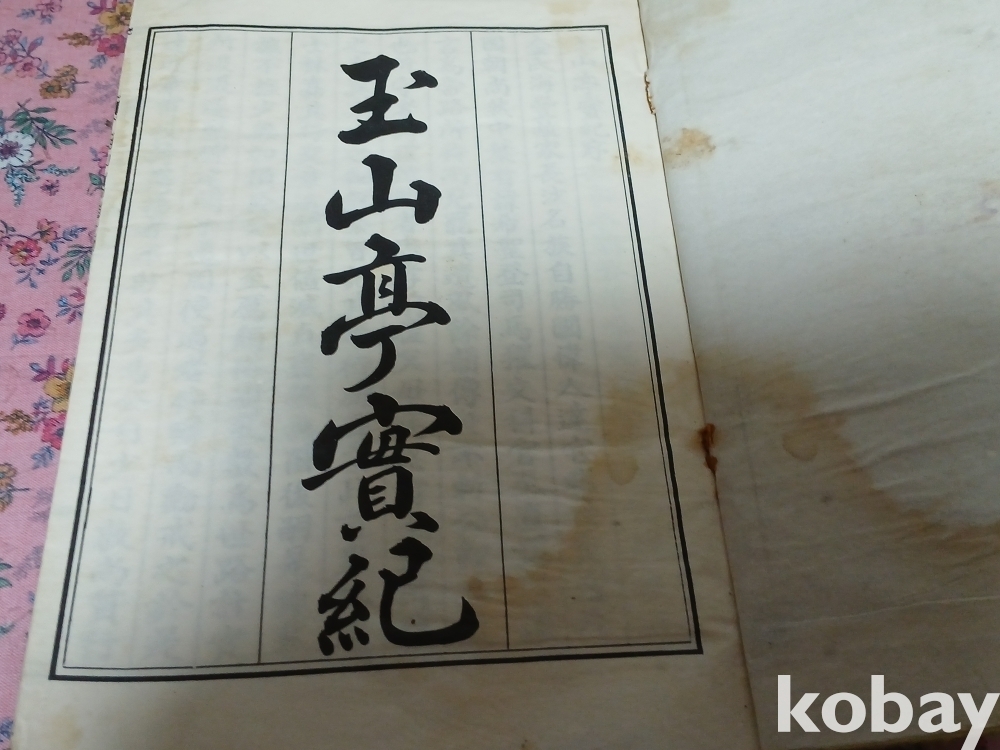 玉山亭實紀
kobay